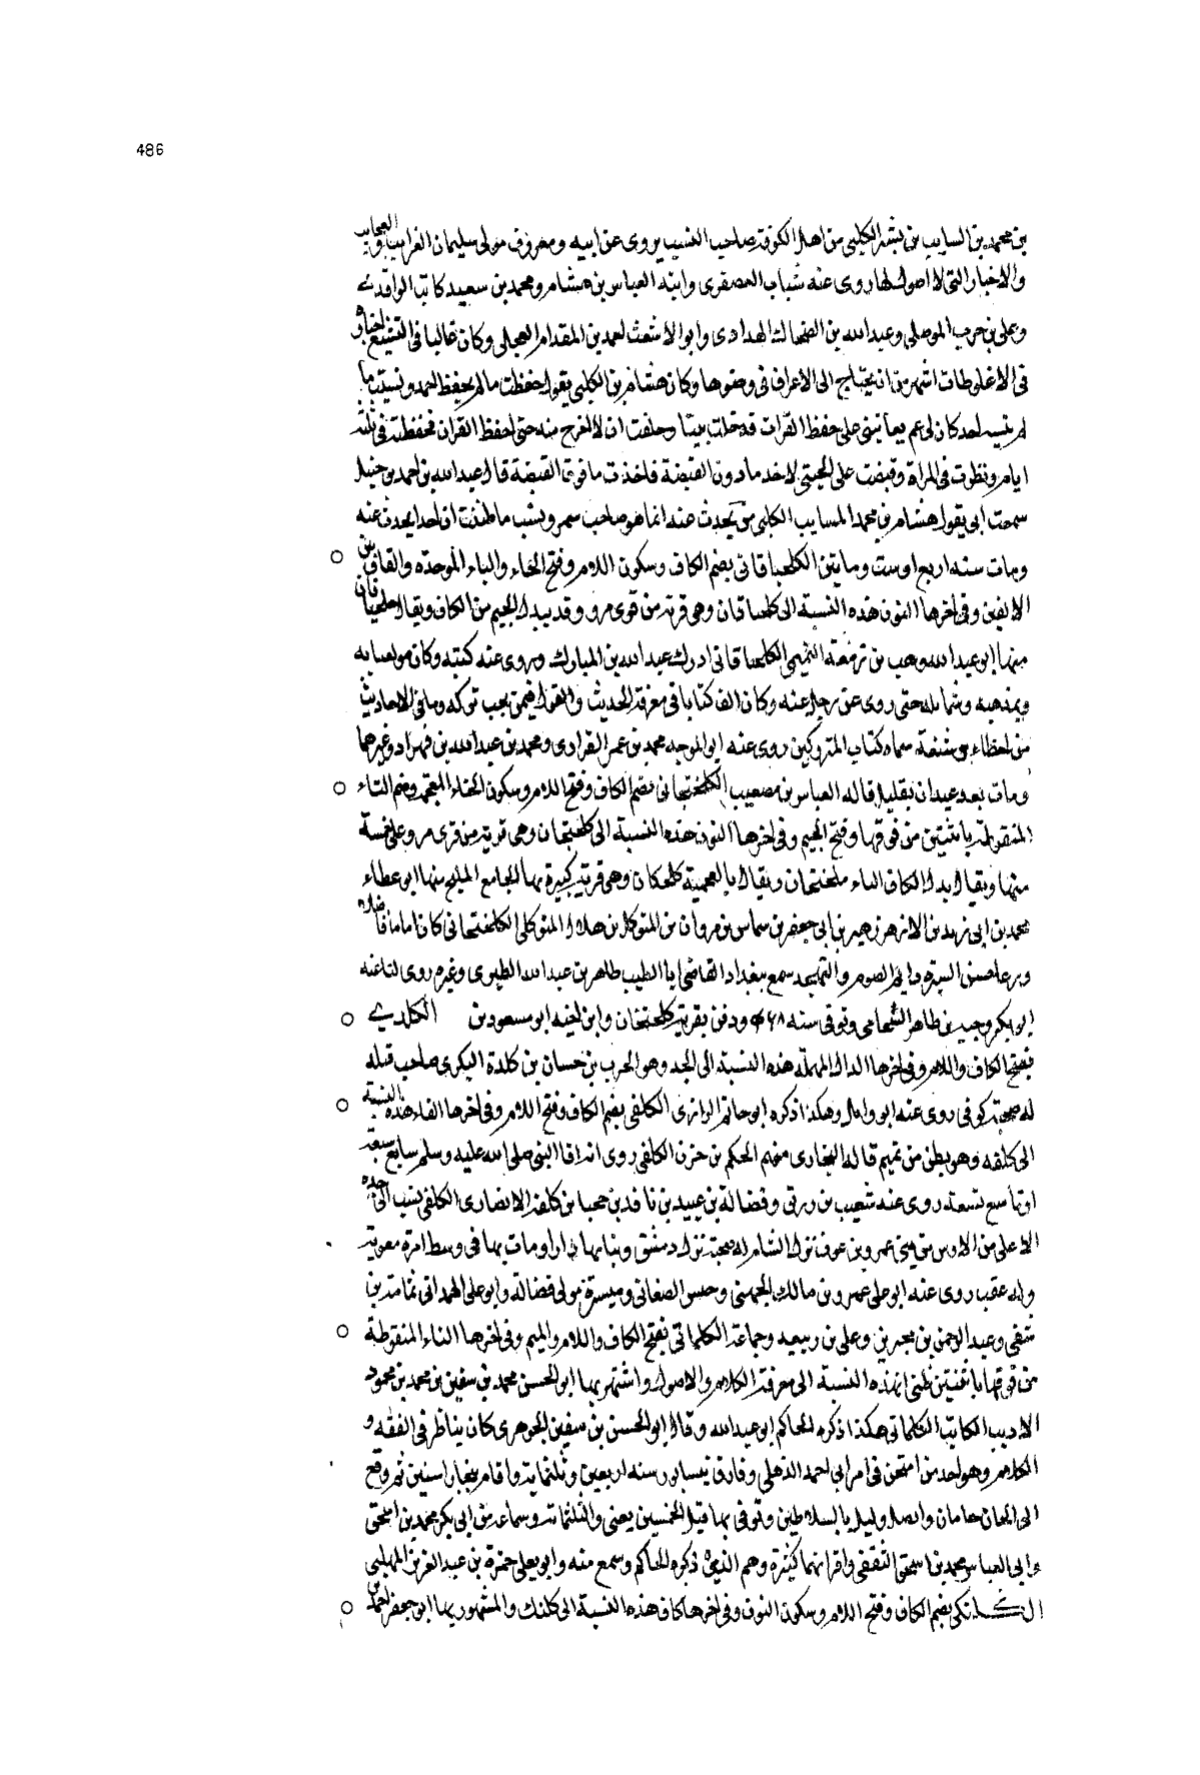 486
بن محمد بن السايب بن بشر الكلبي من اهل الكوفة صاحب النسب يروى عن ابيه ومعروف مولى سليمان الغرايب والعجايب
والاخبار التى لا اصول لها روى عنه شباب العصفرى وابنه العباس بن هشام ومحمد بن سعيد كاتب الواقدى
وعلى بن حرب الموصلى وعبد الله بن الضحاك الهدادى وابو الاشعث احمد بن المقدام العجلى وكان غاليا فى التشيع اخباره
فى الاغلوطات اشهر من ان يحتاج الى الاغراق فى وصفها وكان هشام بن الكلبى يقول حفظت ما لم يحفظ احد ونسيت ما
لم ينسه احد كان لى عم يعاتبنى على حفظ القران فدخلت بيتا وحلفت ان لا اخرج منه حتى احفظ القران فحفظته فى ثلثة
ايام ونظرت فى المراة وقبضت على لحيتى لاخذ ما دون القبضة فاخذت ما فوق القبضة قال عبد الله بن احمد بن حنبل
سمعت ابى يقول هشام بن محمد السايب الكلبى من يحدث عنه انما هو صاحب سمر ونسب ما ظننت ان احدا يحدث عنه
ومات سنه اربع او ست وماتين الكلخباقانى بضم الكاف وسكون اللام وفتح الخاء والباء الموحدة والقاف بين
الالفين وفى اخرها النون هذه النسبة الى كلخباقان وهى قرية من قرى مرو وقد يبدل الجيم من الكاف ويقال جلخباقان
منها ابو عبد الله وهب بن زمعة التميمى الكلخباقانى ادرك عبد الله بن المبارك وروى عنه كتبه وكان مولعا به
وبمذهبه وشمايله حتى روى عن رجل عنه وكان الف كتابا فى معرفة الحديث والقول فيمن يجب تركه وما فى الاحاديث
من خطاء سماه كتاب المتروكين روى عنه ابو الموجه محمد بن عمرو الفزارى ومحمد بن عبد الله بن قهزاد وغيرهما
ومات بعد عبدان بقليل قاله العباس بن مصعب الكلختجانى بضم الكاف وفتح اللام وسكون الخاء المعجمة وضم التاء
المنقوطة باثنتين من فوقها وفتح الجيم وفى اخرها النون هذه النسبة الى كلختجان وهى قرية من قرى مرو على خمسة
منها ويقال بدل الكاف وهى قرية كبيرة بها الجامع المليح منها ابو عطاء
محمد بن ابى زيد بن الازهر زهير بن ابى جعفر بن بن مروان بن المتوكل بن هلال المتوكلى الكلختجانى كان اماما فاضلا
ورعا حسن السيرة دايم الصوم والتهجد سمع ببغداد القاضى ابا الطيب طاهر بن عبد الله الطبرى وغيره روى لنا عنه
ابو بكر وجيه بن طاهر الشحامى وتوفى سنه ودفن بقرية كلختجان وابن اخيه ابو مسعود بن الكلدى
بفتح الكاف واللام وفى اخرها الدال المهملة هذه النسبة الى الجد وهو الحرث بن حسان بن كلدة البكرى صاحب قيله
له صحبة كوفى روى عنه ابو وايل وهكذا ذكره ابو حاتم الرازى الكلفى بضم الكاف وفتح اللام وفى اخرها الفاء هذه النسبة
الى كلفه وهو بطن من تميم قاله البخارى منهم الحكم بن حزن الكلفى روى انه اتى النبى صلى الله عليه وسلم سابع سبعة
او تاسع تسعة روى عنه شعيب بن رزيق وفضالة بن عبيد بن نافذ بن صهيبة بن كلفة الانصارى الكلفى ينسب الى جده
الاعلى من الاوس من بنى عمرو بن عوف نزل الشام له صحبة نزل دمشق وبنا بها دارا ومات بها فى وسط امرة معوية
وله عقب روى عنه ابو على عمرو بن مالك الجهنى وحنش الصنعانى وميسرة مولى فضالة وابو على الهمدانى ثمامة بن
شفى وعبد الرحمن بن محيريز وعلى بن رباح وجماعة الكلماتى بفتح الكاف واللام والميم وفى اخرها التاء المنقوطة
من فوقها باثنتين ظنى ان هذه النسبة الى معرفة الكلام والاصول واشتهر بها ابو الحسن محمد بن سفين بن محمد بن محمود
الاديب الكاتب الكلماتى هكذا ذكره الحاكم ابو عبد الله وقال ابو الحسن بن سفين الجوهرى كان يناظر فى الفقه و
الكلام وهو احد من امتحن فى امر ابى احمد الذهلى وفارق نيسابور سنه اربعين وثلثماية واقام ببخارا سنين ثم وقع
الى واتصل بالسلاطين وتوفى بها قبل الخمسين يعنى والثلثماية وسماعه من ابى بكر محمد بن اسحق
وابى العباس محمد بن اسحق الثقفى واقرانهما كثيرة وهم الذين ذكره الحاكم وسمع منه وابو يعلى حمزة بن عبد العزيز المهلبى
الكلنكى بضم الكاف وفتح اللام وسكون النون وفى اخرها كاف هذه النسبة الى كلنك والمشهور بها ابو جعفر احمد بن